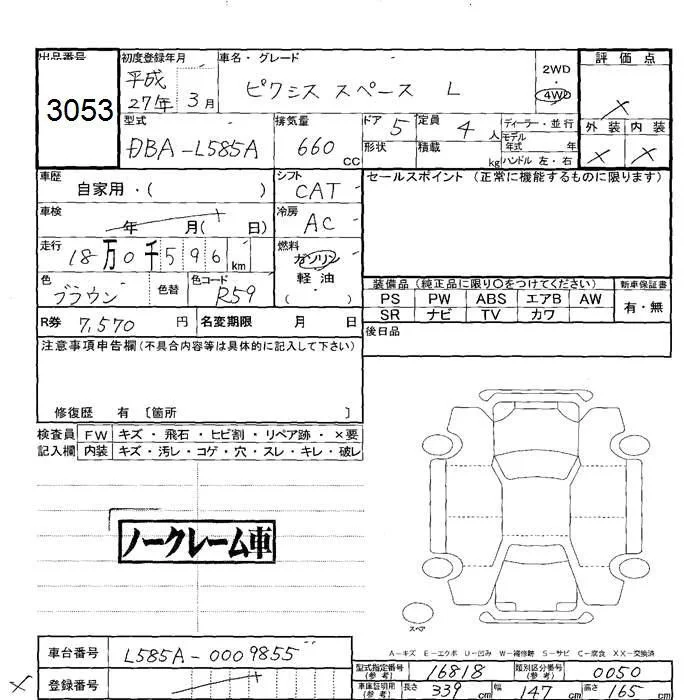 出品番号
3053
初度登録年月
平成
27年 3月
車名・グレード
ピクシス スペース L
2WD
4WD
評価点
×
外装 内装
× ×
型式
DBA-L585A
排気量
660 CC
ドア 5
形状
定員 4 人
積載 kg
ディーラー・並行
モデル
年式 年
ハンドル 左・右
車歴
自家用・( )
シフト
CAT
セールスポイント (正常に機能するものに限ります)
車検
年 月( 日)
冷房
AC
走行
18万0千596 km
燃料
ガソリン
軽油
( )
色
ブラウン
色替
色コード
R59
装備品 (純正品に限り〇をつけてください)
新車保証書
PS PW ABS エアB AW
有・無
SR ナビ TV カワ
R券 7,570 円
名変期限 月 日
後日品
注意事項申告欄(不具合内容等は具体的に記入して下さい)
修復歴 有 〔箇所 〕
検査員 FW キズ・飛石・ヒビ割・リペア跡・×要
記入欄 内装 キズ・汚レ・コゲ・穴・スレ・キレ・破レ
ノークレーム車
スペア
A-キズ E-エクボ U-凹み W-補修跡 S-サビ C-腐食 XX-交換済
車台番号
L585A-0009855
型式指定番号
(参考)
16818
類別区分番号
(参考)
0050
× 登録番号
車庫証明用
(参考)
長さ 339 cm 幅 147 cm 高さ 165 cm